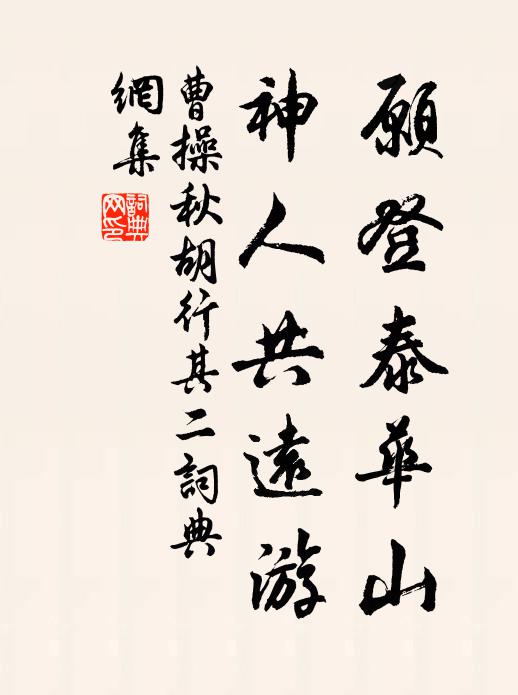 願登泰華山
神人共遠游
曹操秋胡行其二詞典
網集
詞典
网印